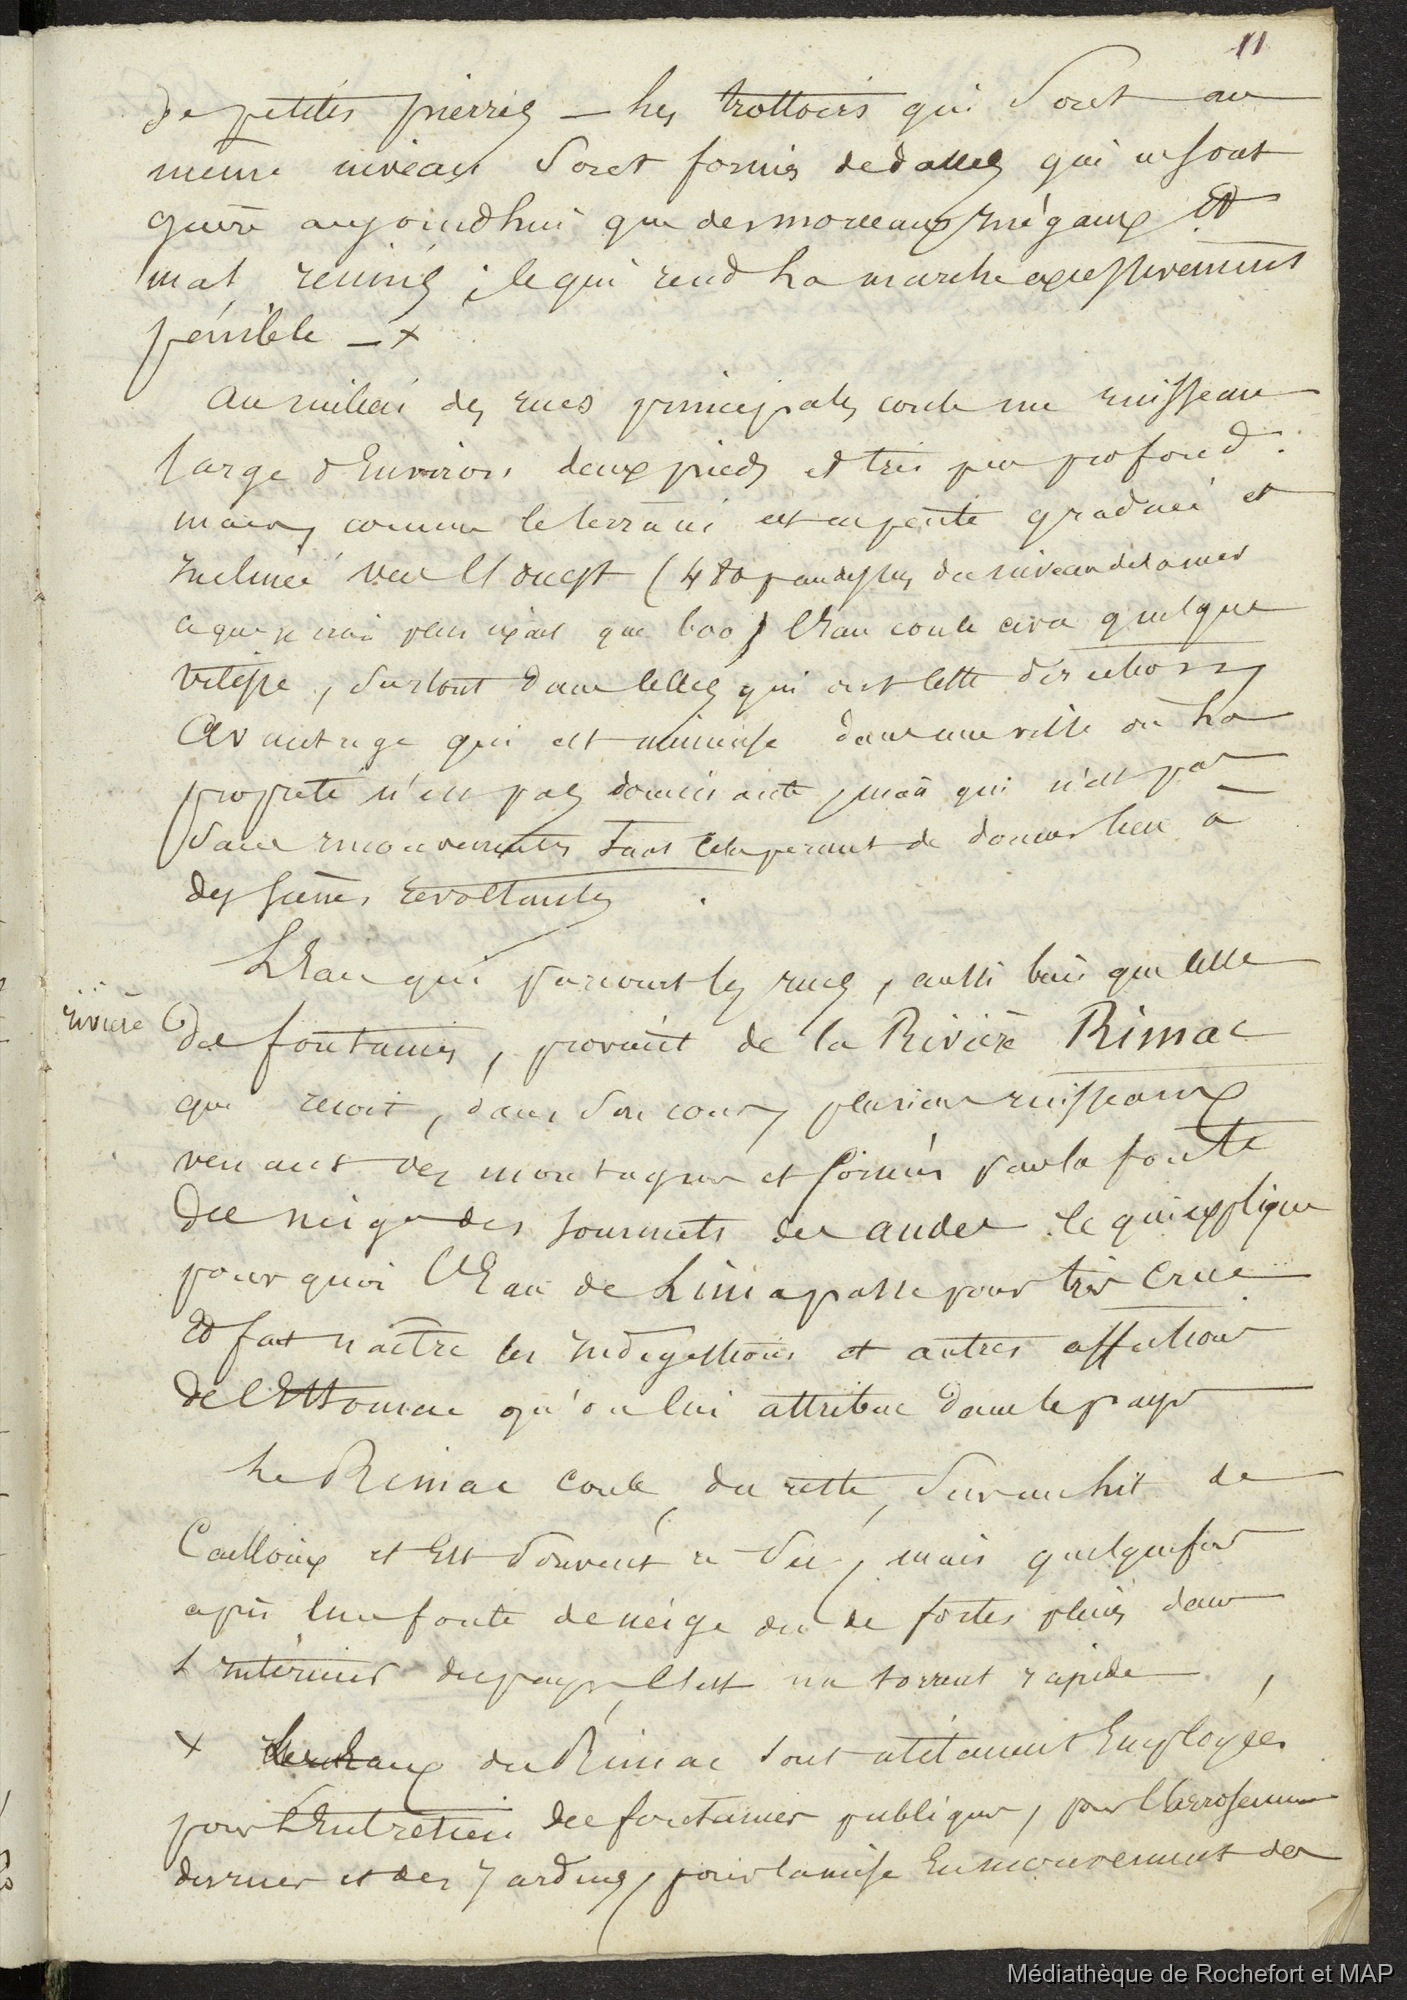 11
de petites pierres — les trottoirs qui sont au
meme niveau sont formés de dalles qui ne sont
guere aujourdhui que des morceaux inégaux Et
mal reunis ; ce qui rend la marche excessivement
pénible — x
au milieu des rues principales coule un ruisseau
large d'Environ deux pieds et très peu profond .
mais, comme le terrain est en pente graduée et
inclinée vers l'Ouest (480 p au dessus du niveau de la mer
ce que je crois plus exact que 600) l'Eau coule avec quelque
vitesse, surtout dans celles qui ont cette direction,
avantage qui est immense dans une ville où la
propreté n'est pas dominante, mais qui n'est pas
sans inconvenients tant cela permet de donner lieu à
des scènes revoltantes .
L'Eau qui parcourt les rues, aussi bien que celle
rivière
des fontaines, provient de la Rivière Rimac
qui recoit, dans son cours, plusieurs ruisseaux
venant des montagnes et formés par la fonte
des neiges des sommets des andes ce qui explique
pourquoi l'Eau de Lima passe pour très crue
Et fait naître les indigestions et autres affections
de l'Estomac qu'on lui attribue dans le pays
Le Rimac coule, du reste, sur un lit de
Cailloux et Est souvent a sec, mais quelquefois
après une fonte de neige ou de fortes pluies dans
l'intérieur du pays c'est un torrent rapide ,
x Les Eaux du Rimac sont utilement Employées
pour l'Entretien des fontaines publiques, pour l'arrosement
des rues et des jardins, pour la mise En mouvement des
Médiathèque de Rochefort et MAP